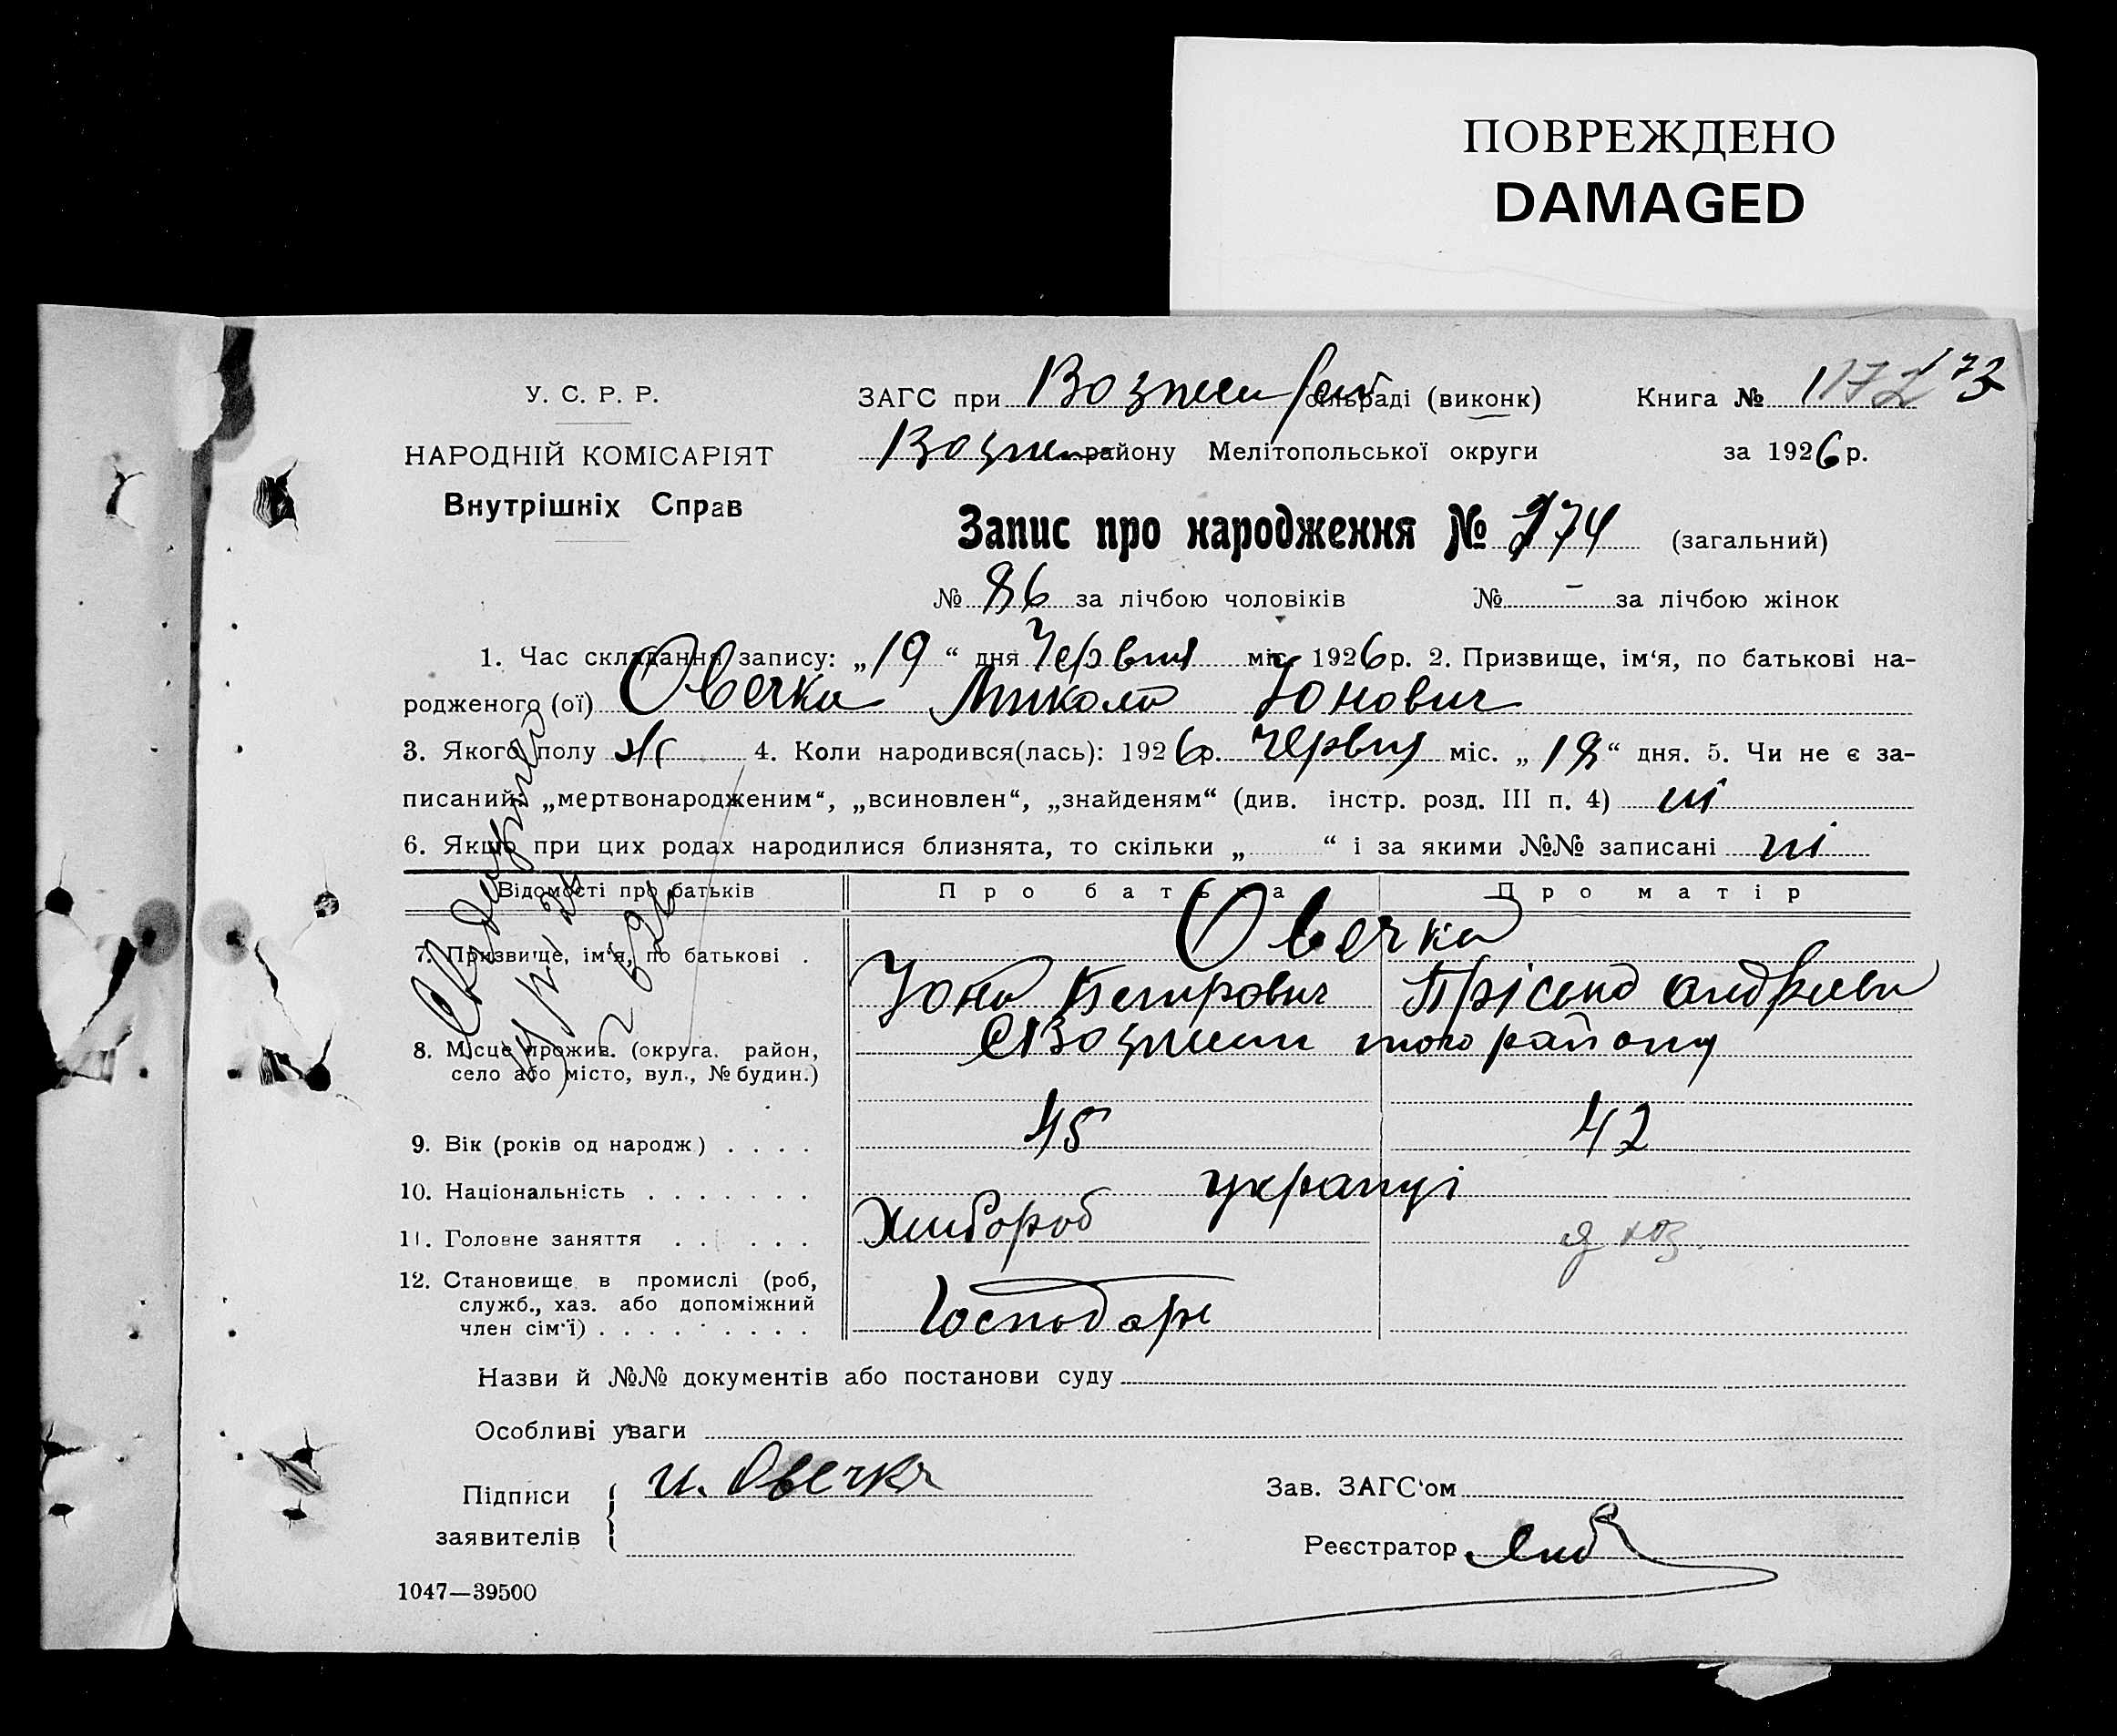 ПОВРЕЖДЕНО
DAMAGED
У. С. Р. Р.
НАРОДНІЙ КОМІСАРІЯТ
Внутрішніх Справ
ЗАГС при сільраді (виконк)
Книга № 1 173
району Мелітопольської округи
за 1926 р.
Запис про народження № 174 (загальний)
№ 86 за лічбою чоловіків № - за лічбою жінок
1. Час складання запису: „ 19 “ дня Червня міс. 1926 р. 2. Призвище, ім‘я, по батькові на-
родженого (ої) Овечка Микола Йонович
3. Якого полу 4. Коли народився(лась): 1926 р. Червня міс. „ “ дня. 5. Чи не є за-
писаний: „мертвонародженим“, „всиновлен“, „знайденям“ (див. інстр. розд. III п. 4) ні
6. Якщо при цих родах народилися близнята, то скільки „ “ і за якими №№ записані ні
Відомості про батьків Про батька Про матір
7. Призвище, ім‘я, по батькові . Овечка
Йона Петрович
8. Місце прожив. (округа. район, того району
село або місто, вул., № будин.)
9. Вік (років од народж) . . . . 45 42
10. Національність . . . . . . . украпці
11. Головне заняття . . . . . Хлибороб д хоз.
12. Становище в промислі (роб,
служб., хаз. або допоміжний
член сім‘ї) . . . . . . . . . Господарь
Назви й №№ документів або постанови суду
Особливі уваги
Підписи И. Овечка
заявителів
Зав. ЗАГС‘ом
Реєстратор
1047—39500